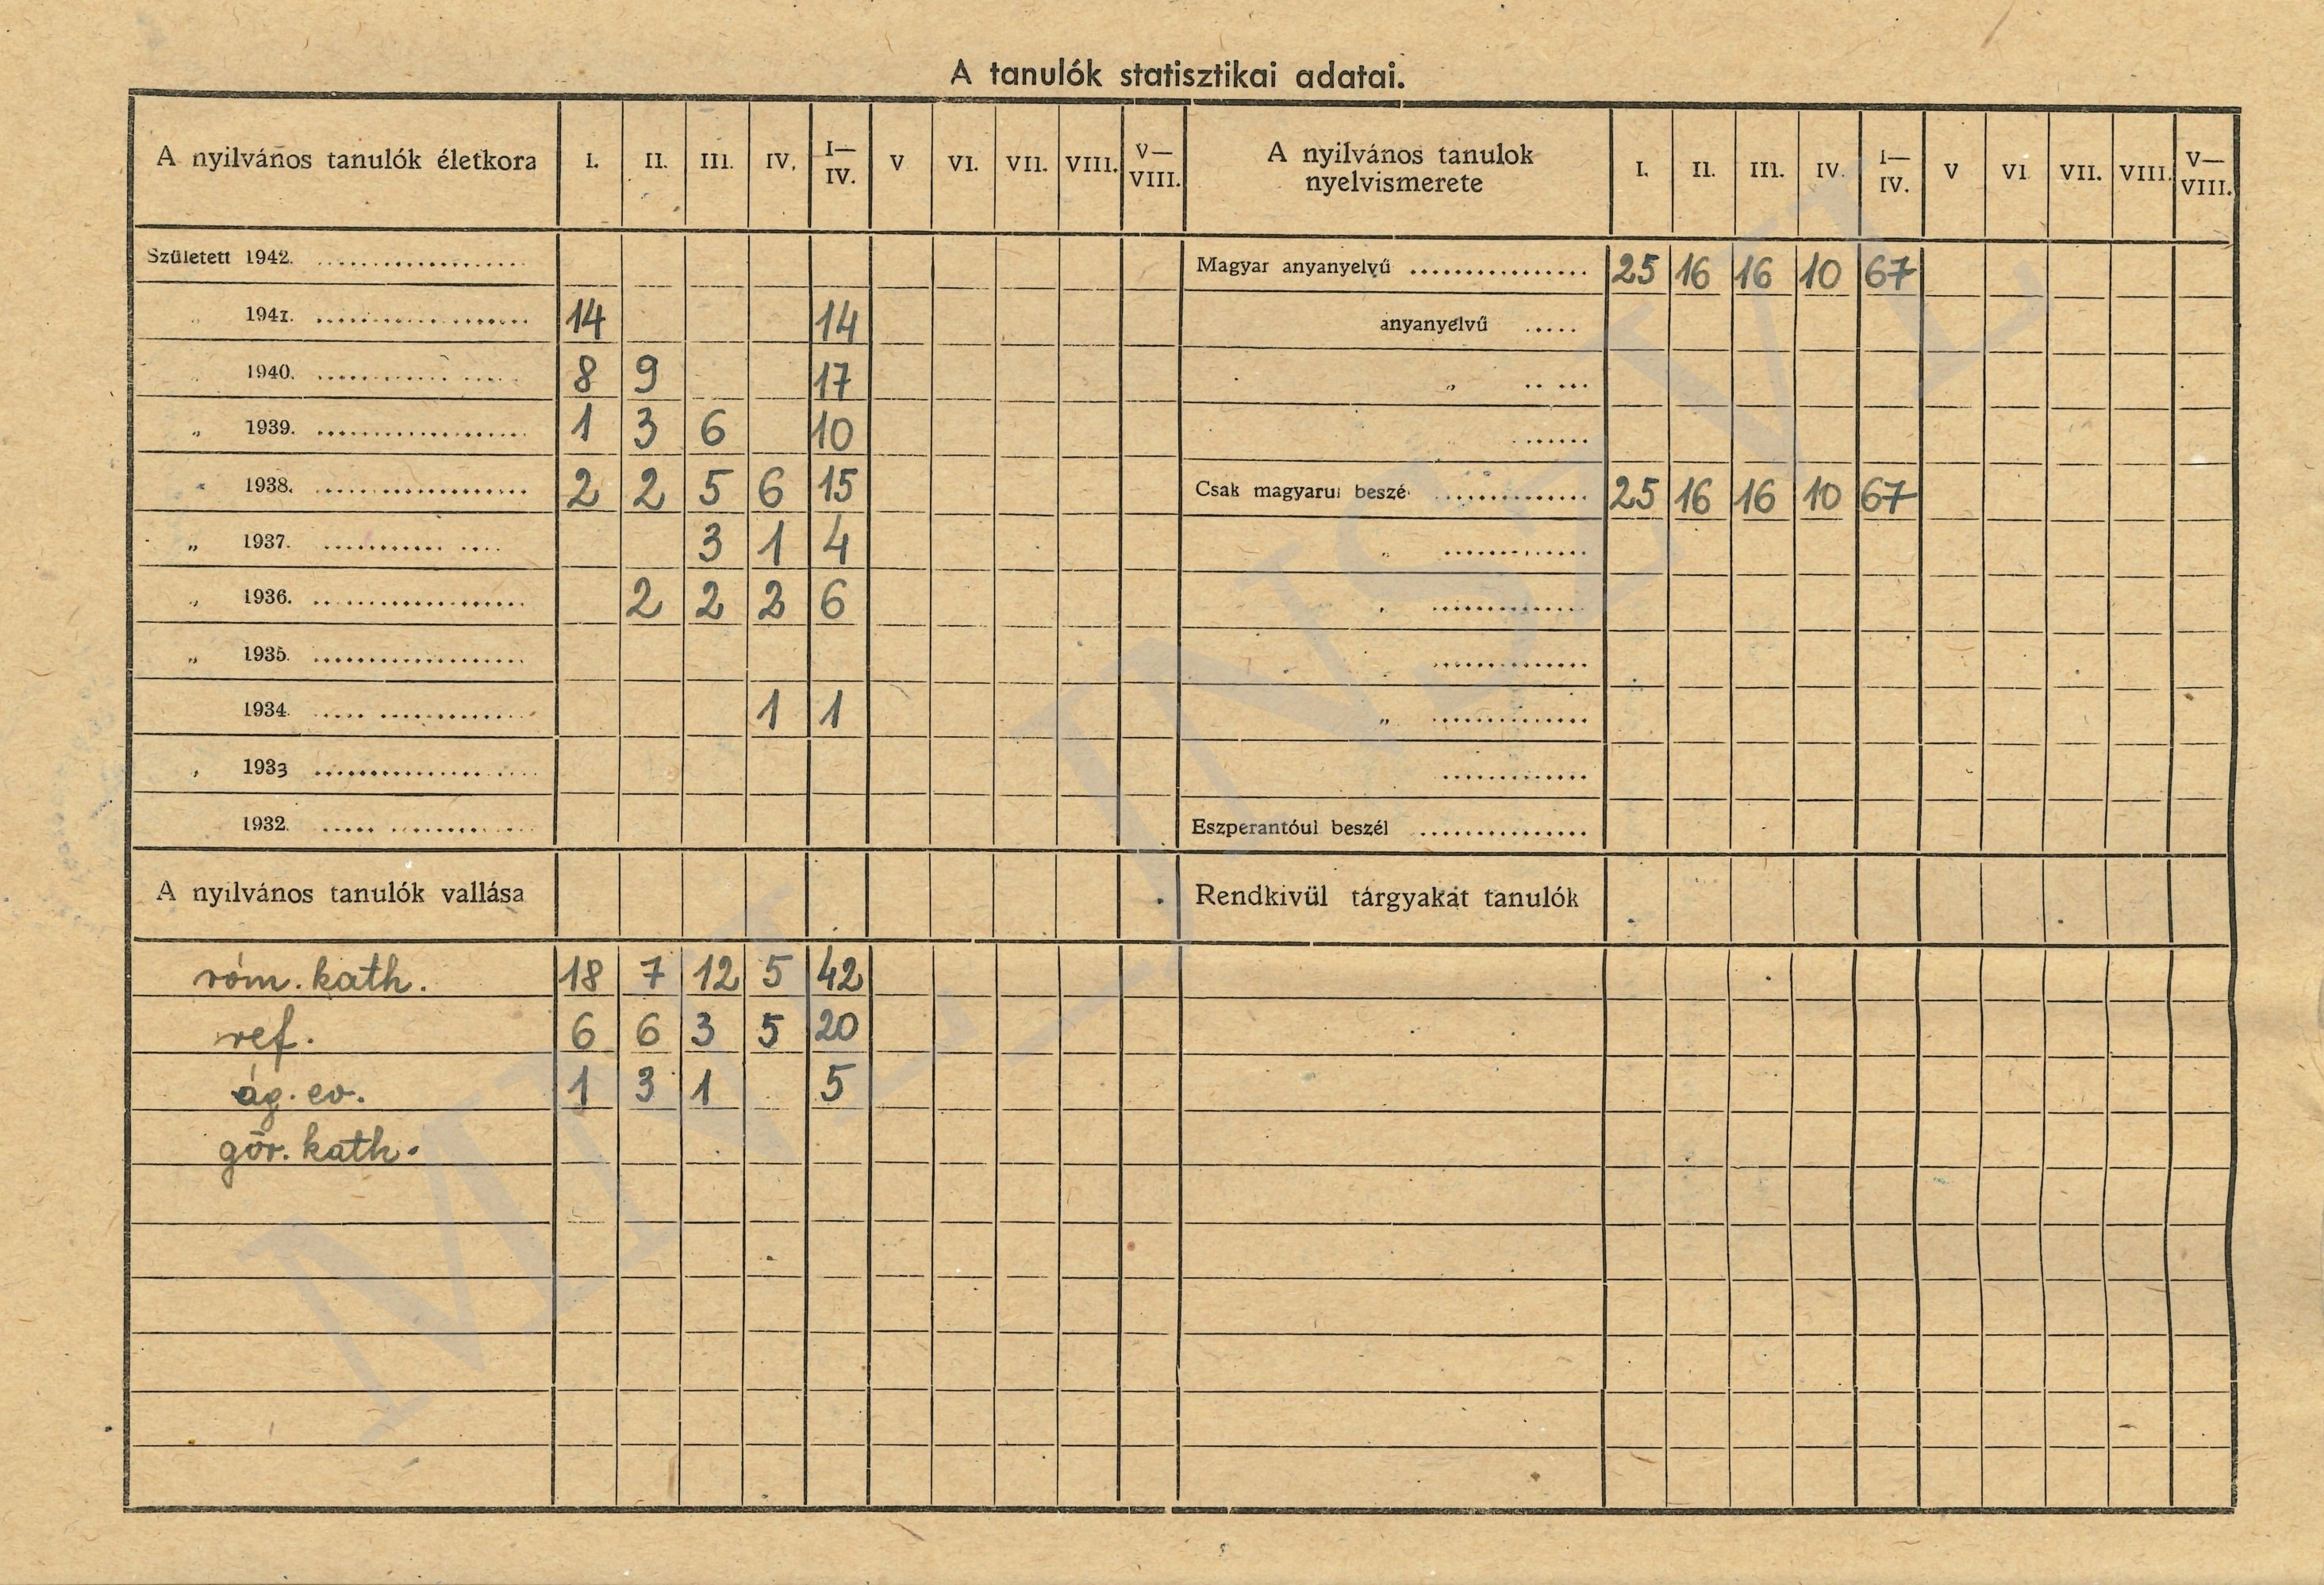 A tanulók statisztikai adatai.
A nyilvános tanulók életkora I. II. III. IV. I—IV. V VI. VII. VIII. V—VIII. A nyilvános tanulok nyelvismerete I. II. III. IV. I—IV. V VI VII. VIII. V—VIII.
Született 1942. Magyar anyanyelvű 25 16 16 10 67
„ 1941. 14 14 anyanyelvű
„ 1940. 8 9 17 „
„ 1939. 1 3 6 10
„ 1938. 2 2 5 6 15 Csak magyarul beszé 25 16 16 10 67
„ 1937. 3 1 4 „
„ 1936. 2 2 2 6 „
„ 1935.
1934. 1 1 „
„ 1933
1932. Eszperantóul beszél
A nyilvános tanulók vallása Rendkivül tárgyakat tanulók
róm. kath. 18 7 12 5 42
ref. 6 6 3 5 20
ág. ev. 1 3 1 5
gör. kath.
MNL JNSZ VL